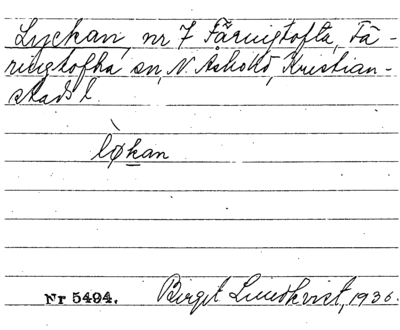 Lyckan, nr 7 Färingtofta, Fä-
ringtofta sn, N. Åsbohd, Kristian-
stads l.
lø̀kan
Nr 5494. Birgit Lindkvist, 1936.